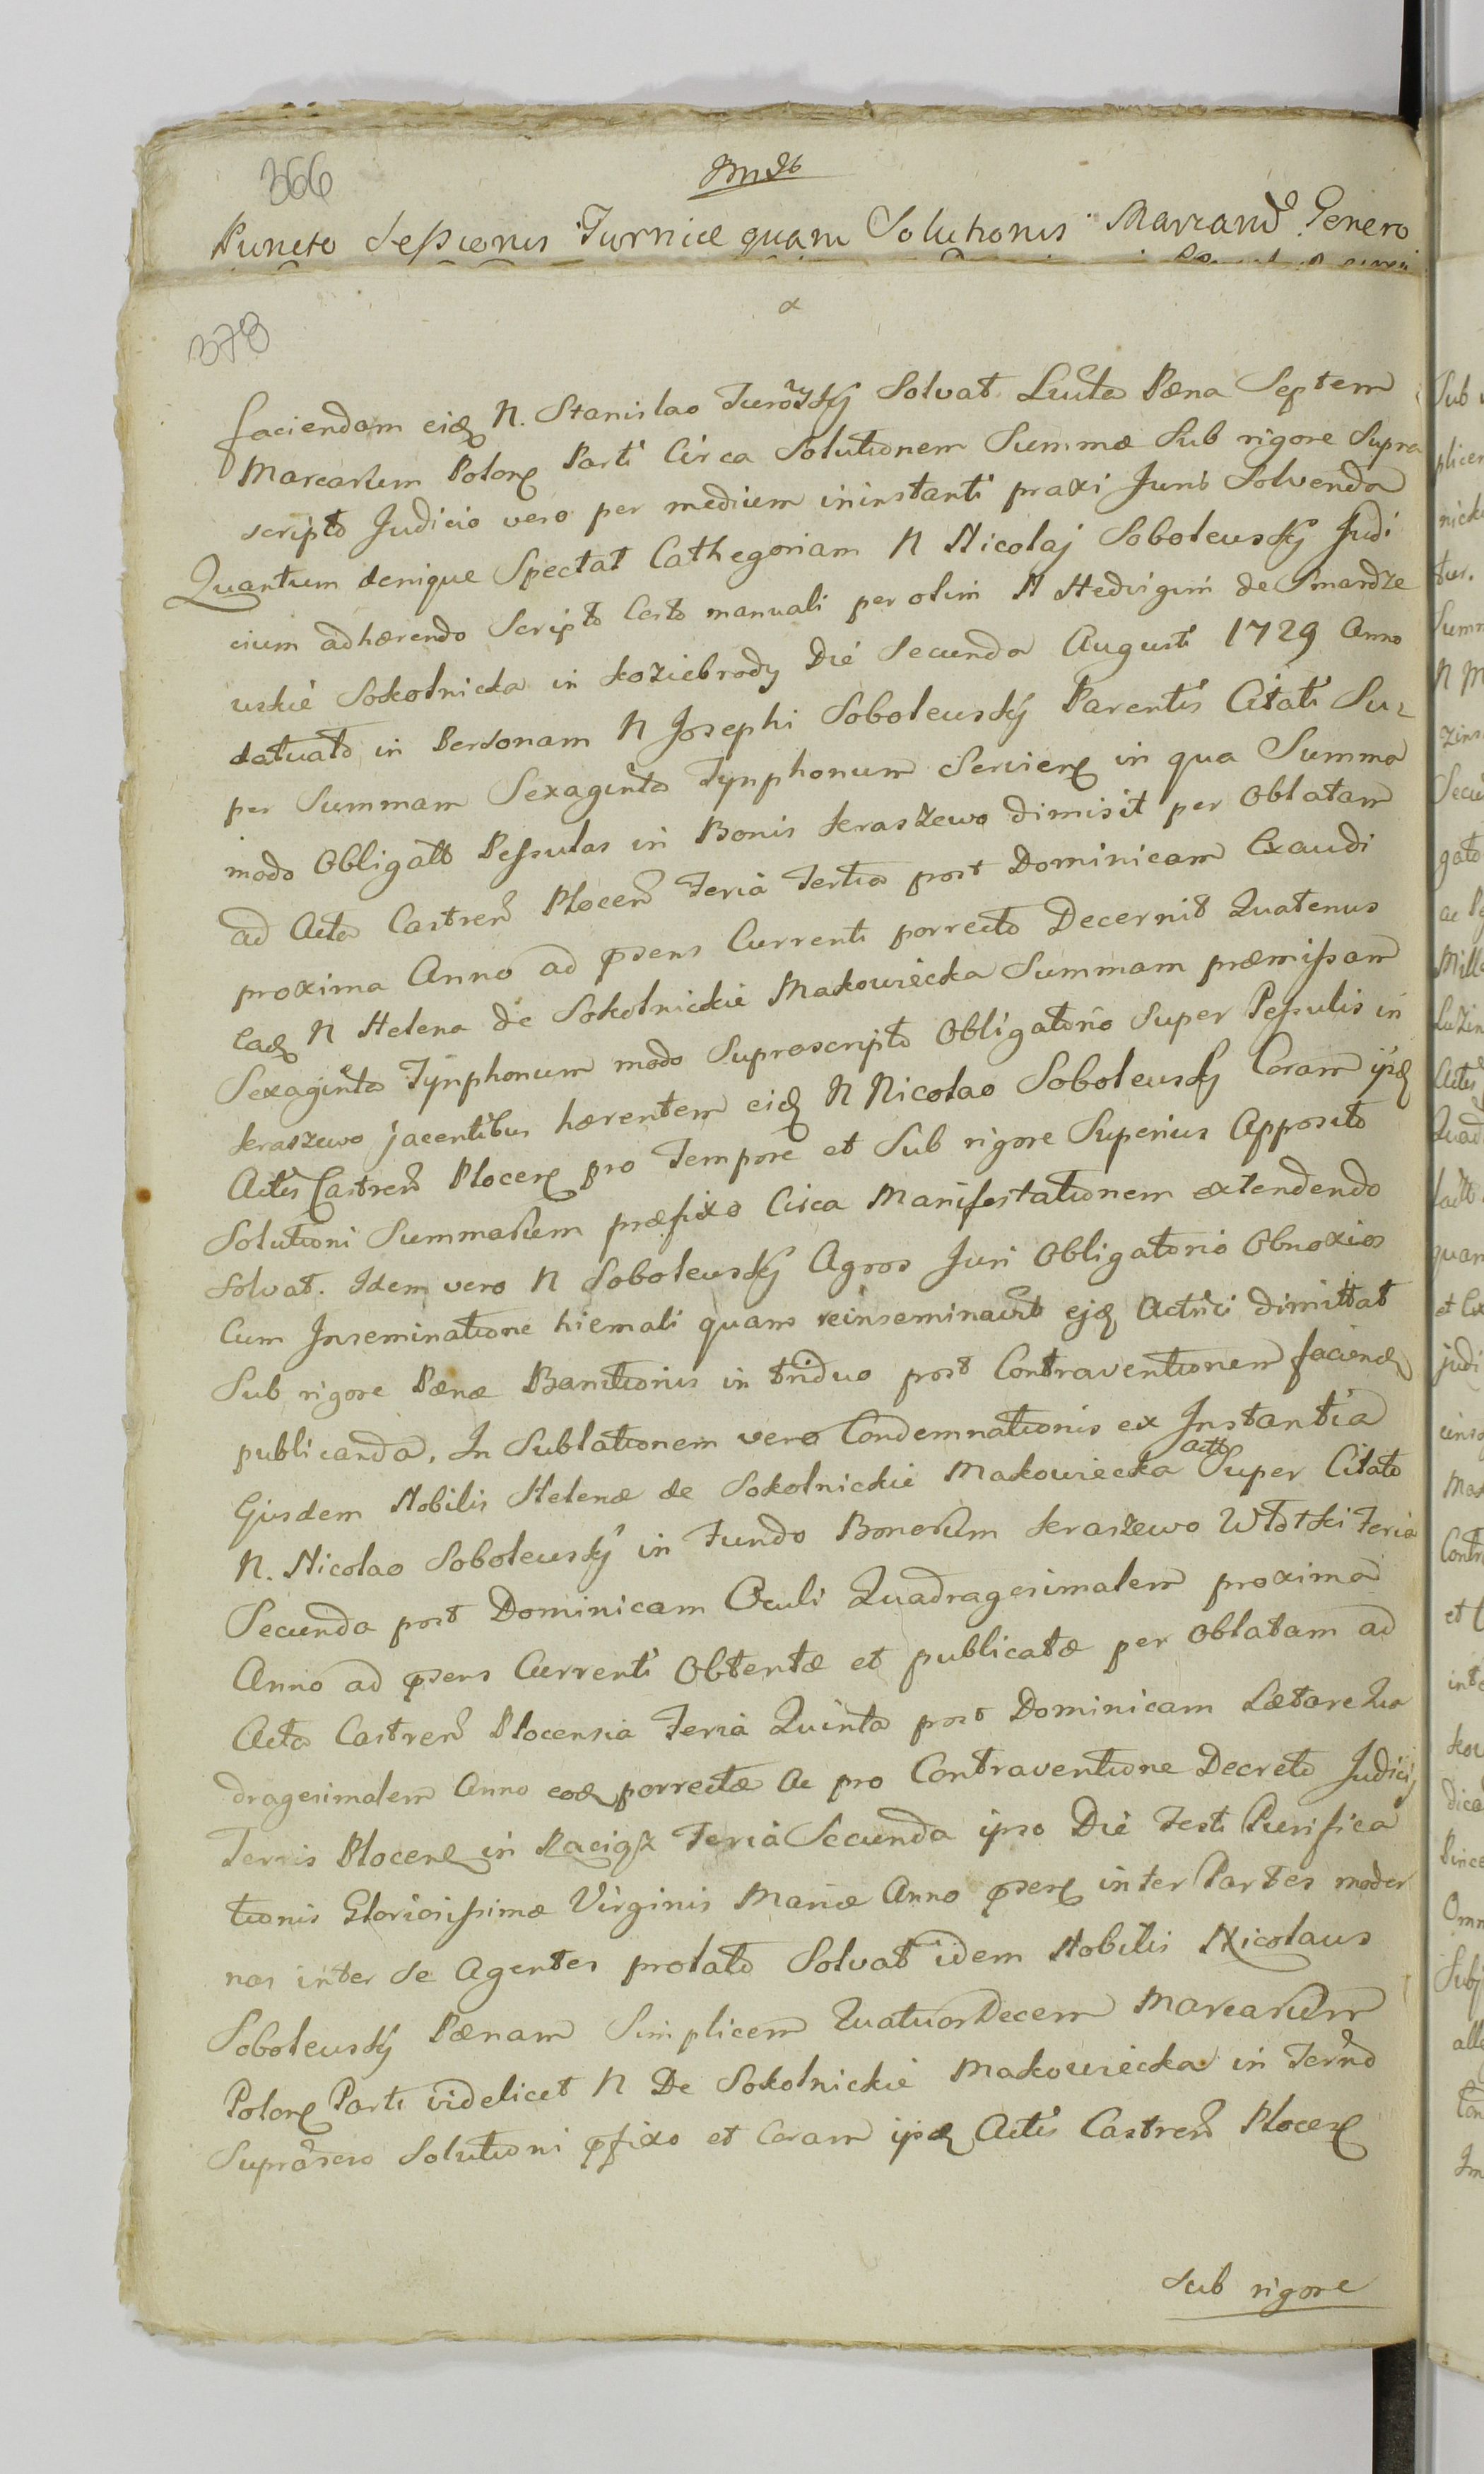 366
Puncto Sessionis Turnicæ quam Solutionis Marcarũ Genero
378
faciendam eidē N. Stanislao Turowsky Solvat Luita Pæna Septem
Marcarum Polonē Parti Circa Solutionem Summæ Sub rigore Supra
scripto Judicio vero per medium ininstanti praxi Juris Solvenda
Quantum denique Spectat Cathegoriam N Nicolaj Sobolewsky Judi
cium adhærendo Scripto Certo manuali per olim N Hedvigim de Smardze
wskie Sokolnicka in Koziebrody Die Secunda Augusti 1729 Anno
datuato, in Personam N Josephi Sobolewsky Parentis Citati Su
per Summam Sexaginta Tynphonum Servienē in qua Summa
modo Obligatt Pessulas in Bonis Kraszewo dimisit per Oblatam
ad Acta Castren Plocen Feria Tertia post Dominicam Exaudi
proxima Anno ad pṡens Currenti porrecto Decernit Quatenus
Eadē N Helena de Sokolnickie Makowiecka Summam præmissam
Sexaginta Tynphonum modo Suprascripto Obligatorio Super Pessulis in
Kraszewo jacentibus hærentem eidē N Nicolao Sobolewsky Coram ijsdē
Actis Castren Plocenē pro Tempore et Sub rigore Superius Apposito
Solutioni Summarum præfixo Circa Manifestationem extendendo
Solvat. Idem vero N Sobolewsky Agros Juri Obligatorio Obnoxios
Cum Inseminatione hiemali quam reinseminavit ejdē Actrici dimittat
Sub rigore Pænæ Bannitionis in triduo post Contraventionem faciendē
publicanda. In Sublationem vero Condemnationis ex Instantia
Ejusdem Nobilis Helenæ de Sokolnickie Makowiecka actt Super Citato
N. Nicolao Sobolewsky in Fundo Bonorum Kraszewo Włotki Feria
Secunda post Dominicam Oculi Quadragesimalem proxima
Anno ad pṡens Currenti Obtentæ et publicatæ per Oblatam ad
Acta Castren Plocensia Feria Quinta post Dominicam Lætare Qua
dragesimalem Anno eodē porrectæ Ac pro Contraventione Decreto Judicij
Terris Plocenē in Raciąż Feria Secunda ipso Die Festi Purifica
tionis Gloriosissimæ Virginis Mariæ Anno pṡenē inter Partes moder
nas inter se Agentes prolato Solvat idem Nobilis Nicolaus
Sobolewsky Pænam Simplicem QuatuorDecem Marcarum
Polonē Parti videlicet N De Sokolnickie Makowiecka in Termo
Suprascro Solutioni pfixo et Coram ijsdē Actis Castren Plocenē
Sub rigore